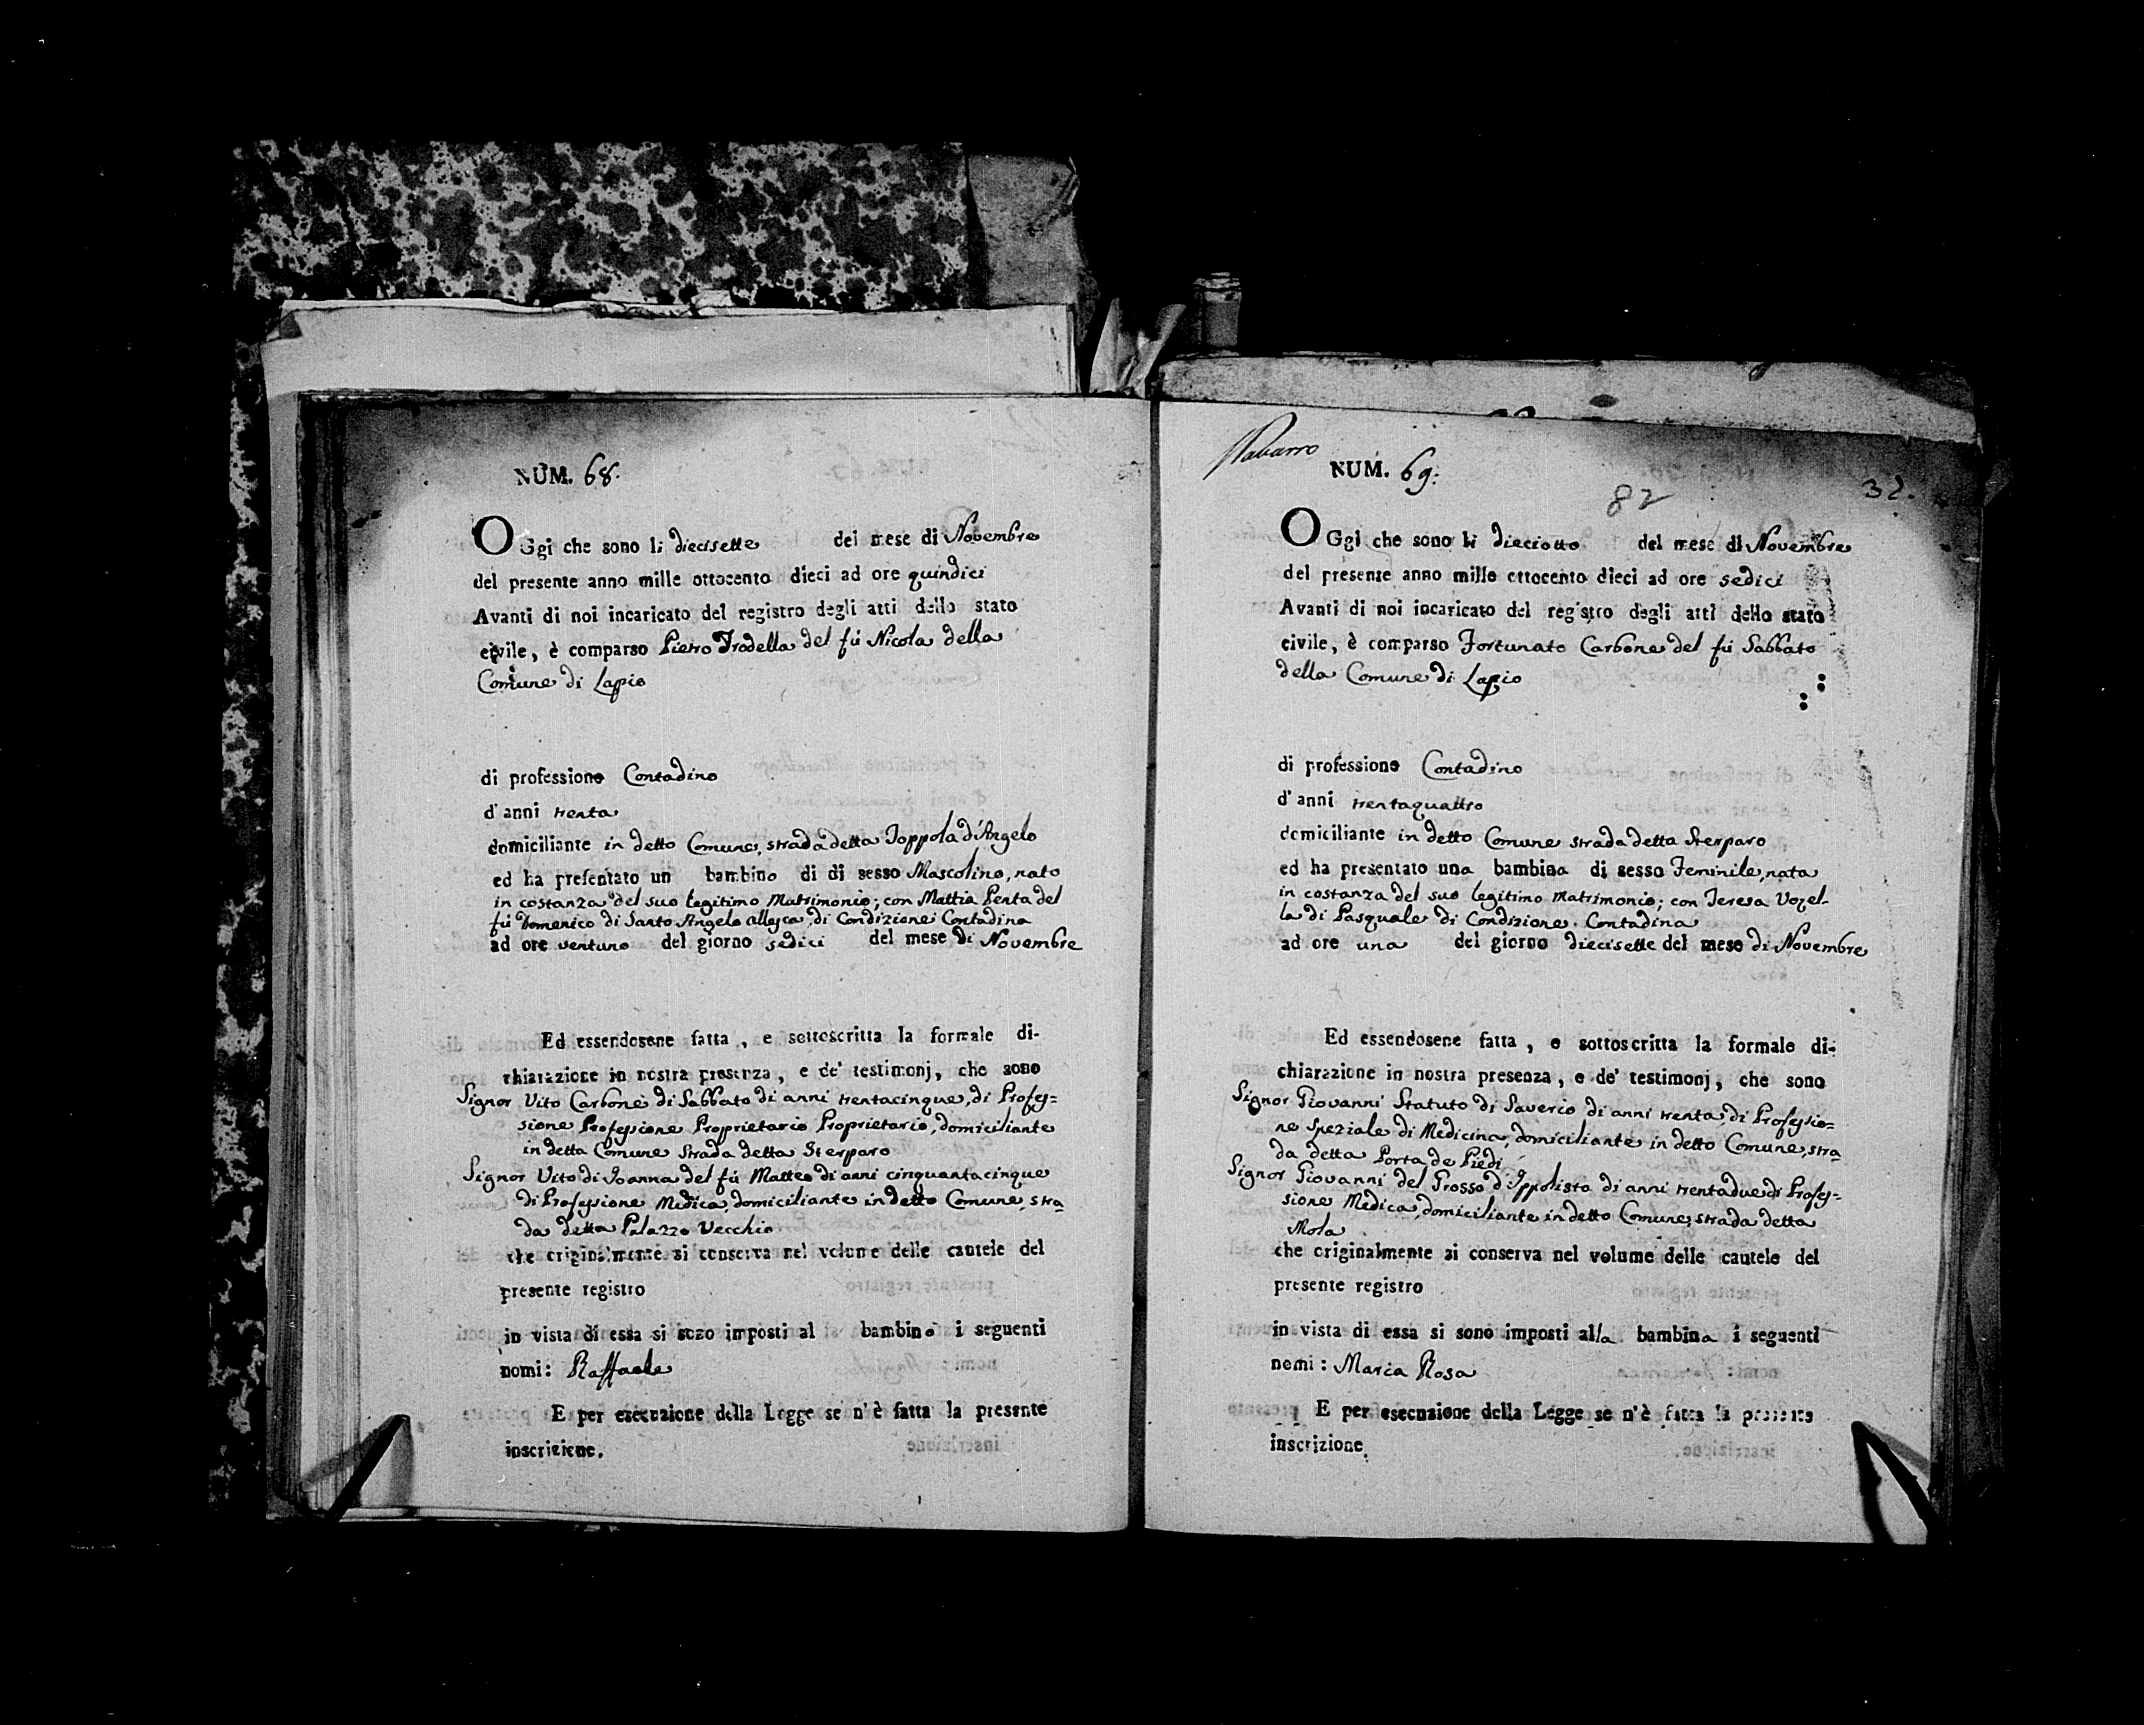 NUM. 68.
OGgi che sono li diecisette del mese di Novembre
del presente anno mille ottocento dieci ad ore quindici
Avanti di noi incaricato del registro degli atti dello stato
civile, è comparso Pietro Trodella del fù Nicola della
Comune di Lapio
di professione Contadino
d'anni trenta
domiciliante in detto Comune, strada detta Toppola d'Angelo
ed ha presentato un bambino di di sesso Mascolino, nato
in costanza del suo legitimo Matrimonio; con Mattia Penta del
fù Domenico di Santo Angelo allesca, di Condizione Contadina
ad ore ventuno del giorno sedici del mese di Novembre
Ed essendosene fatta, e sottoscritta la formale di-
chiarazione in nostra presenza, e de' testimonj, che sono
Signor Vito Carbone di Sabbato di anni trentacinque, di Profes=
sione Professione Proprietario Proprietario, domiciliante
in detta Comune Strada detta Sterparo
Signor Vito di Joanna del fù Matteo di anni cinquantacinque
di Professione Medica, domiciliante in detto Comune, stra
da detta Palazzo Vecchio
che originalmente si conserva nel volume delle cautele del
presente registro
in vista di essa si sono imposti al bambino i seguenti
nomi: Raffaele
E per esecuzione della Legge se n'è fatta la presente
inscrizione.
Navarro
NUM. 69.
82
32.
OGgi che sono li dieciotto del mese di Novembre
del presente anno mille ottocento dieci ad ore sedici
Avanti di noi incaricato del registro degli atti dello stato
civile, è comparso Fortunato Carbone del fù Sabbato
della Comune di Lapio
di professione Contadino
d'anni trentaquattro
domiciliante in detto Comune strada detta Sterparo
ed ha presentato una bambina di sesso Feminile, nata
in costanza del suo legitimo Matrimonio; con Teresa Vozel-
la di Pasquale di Condizione Contadina
ad ore una del giorno diecisette del mese di Novembre
Ed essendosene fatta, e sottoscritta la formale di-
chiarazione in nostra presenza, e de' testimonj, che sono
Signor Giovanni Statuto di Saverio di anni trenta, di Professio=
ne Speziale di Medicina, domiciliante in detto Comune, stra
da detta Porta de Piedi
Signor Giovanni del Grosso d'Ippolisto di anni trentadue di Profes=
sione Medica, domiciliante in detto Comune, strada detta
Mola
che originalmente si conserva nel volume delle cautele del
presente registro
in vista di essa si sono imposti alla bambina i seguenti
nomi: Maria Rosa
E per esecuzione della Legge se n'è fatta la presente
inscrizione.